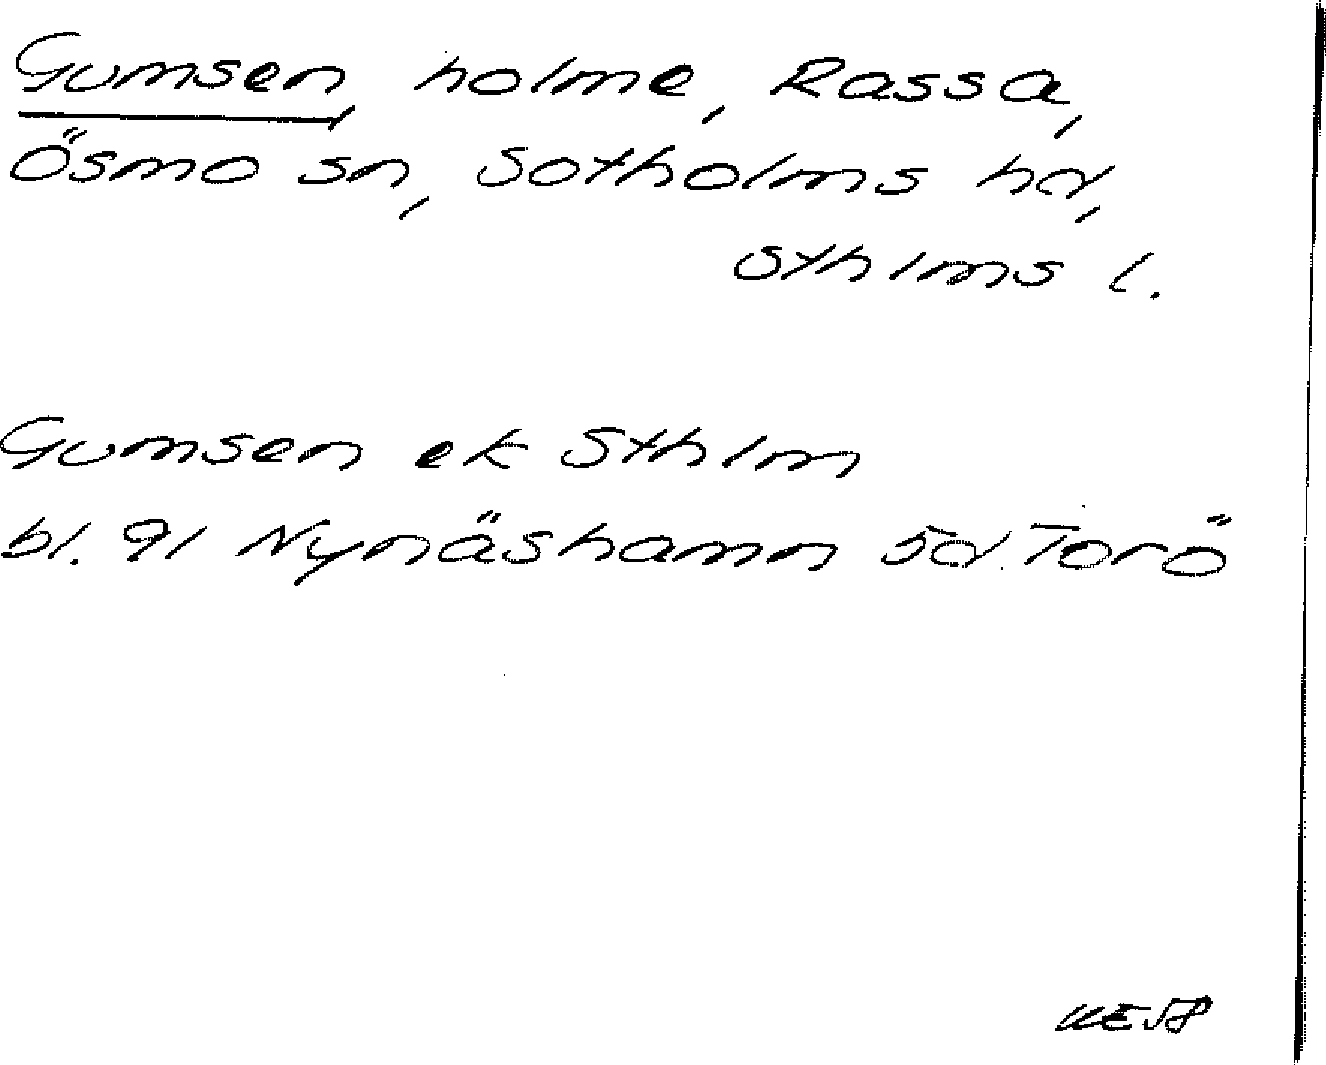 Gumsen, holme, Rassa,
Ösmo sn, Sotholms hd,
Sthlms l.
Gumsen ek Sthlm
bl. 91 Nynäshamn 5d. Torö